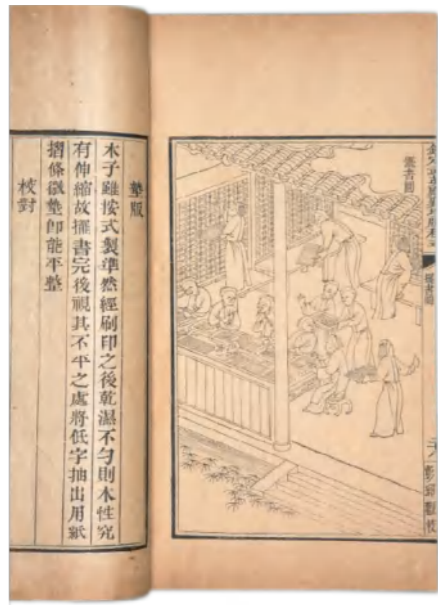 擺書圖
擺書圖
墊版
木子雖按式製準然經刷印之後乾濕不勻則木性究
有伸縮故擺書完後視其不平之處將低字抽出用紙
摺條微墊卽能平整
校對